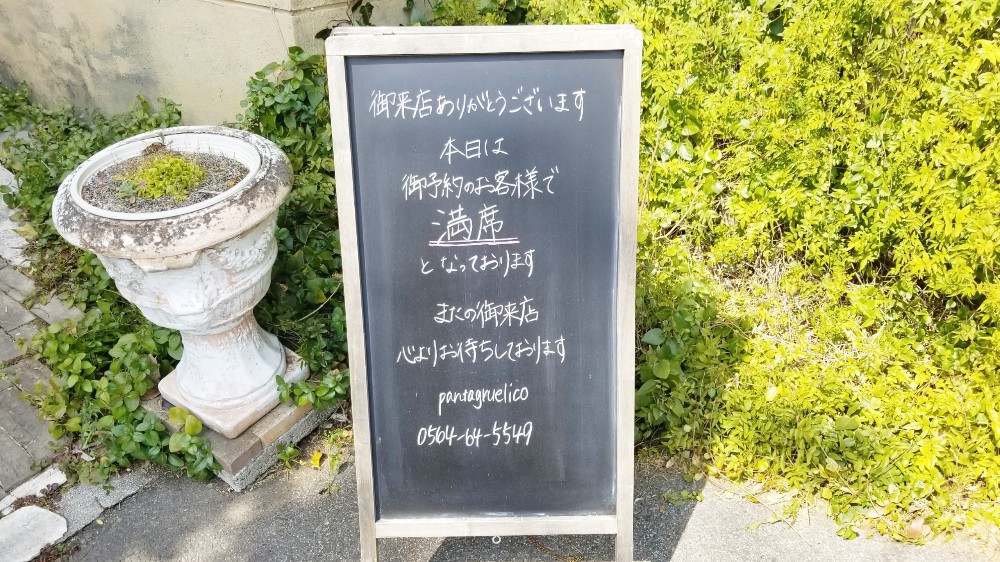 御来店ありがとうございます
本日は
御予約のお客様で
満席
となっております
またの御来店
心よりお待ちしております
pantagruelico
0564-64-5549